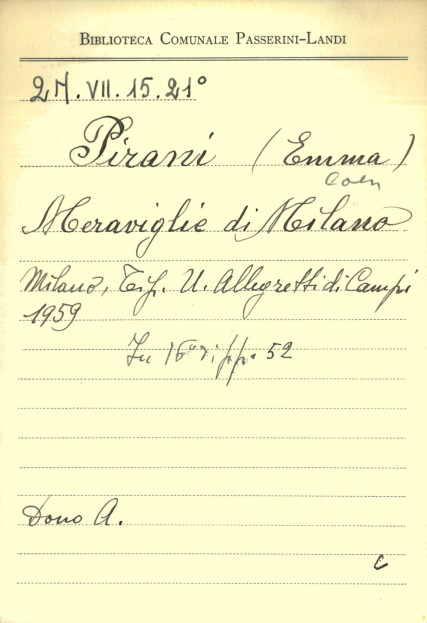 BIBLIOTECA COMUNALE PASSERINI-LANDI
2M.VII.15.21°
Pirani (Emma)
Coen
Meraviglie di Milano
Milano, Tip. U. Allegretti di Campi
1959
In 16° pp. 52
Dono A.
c